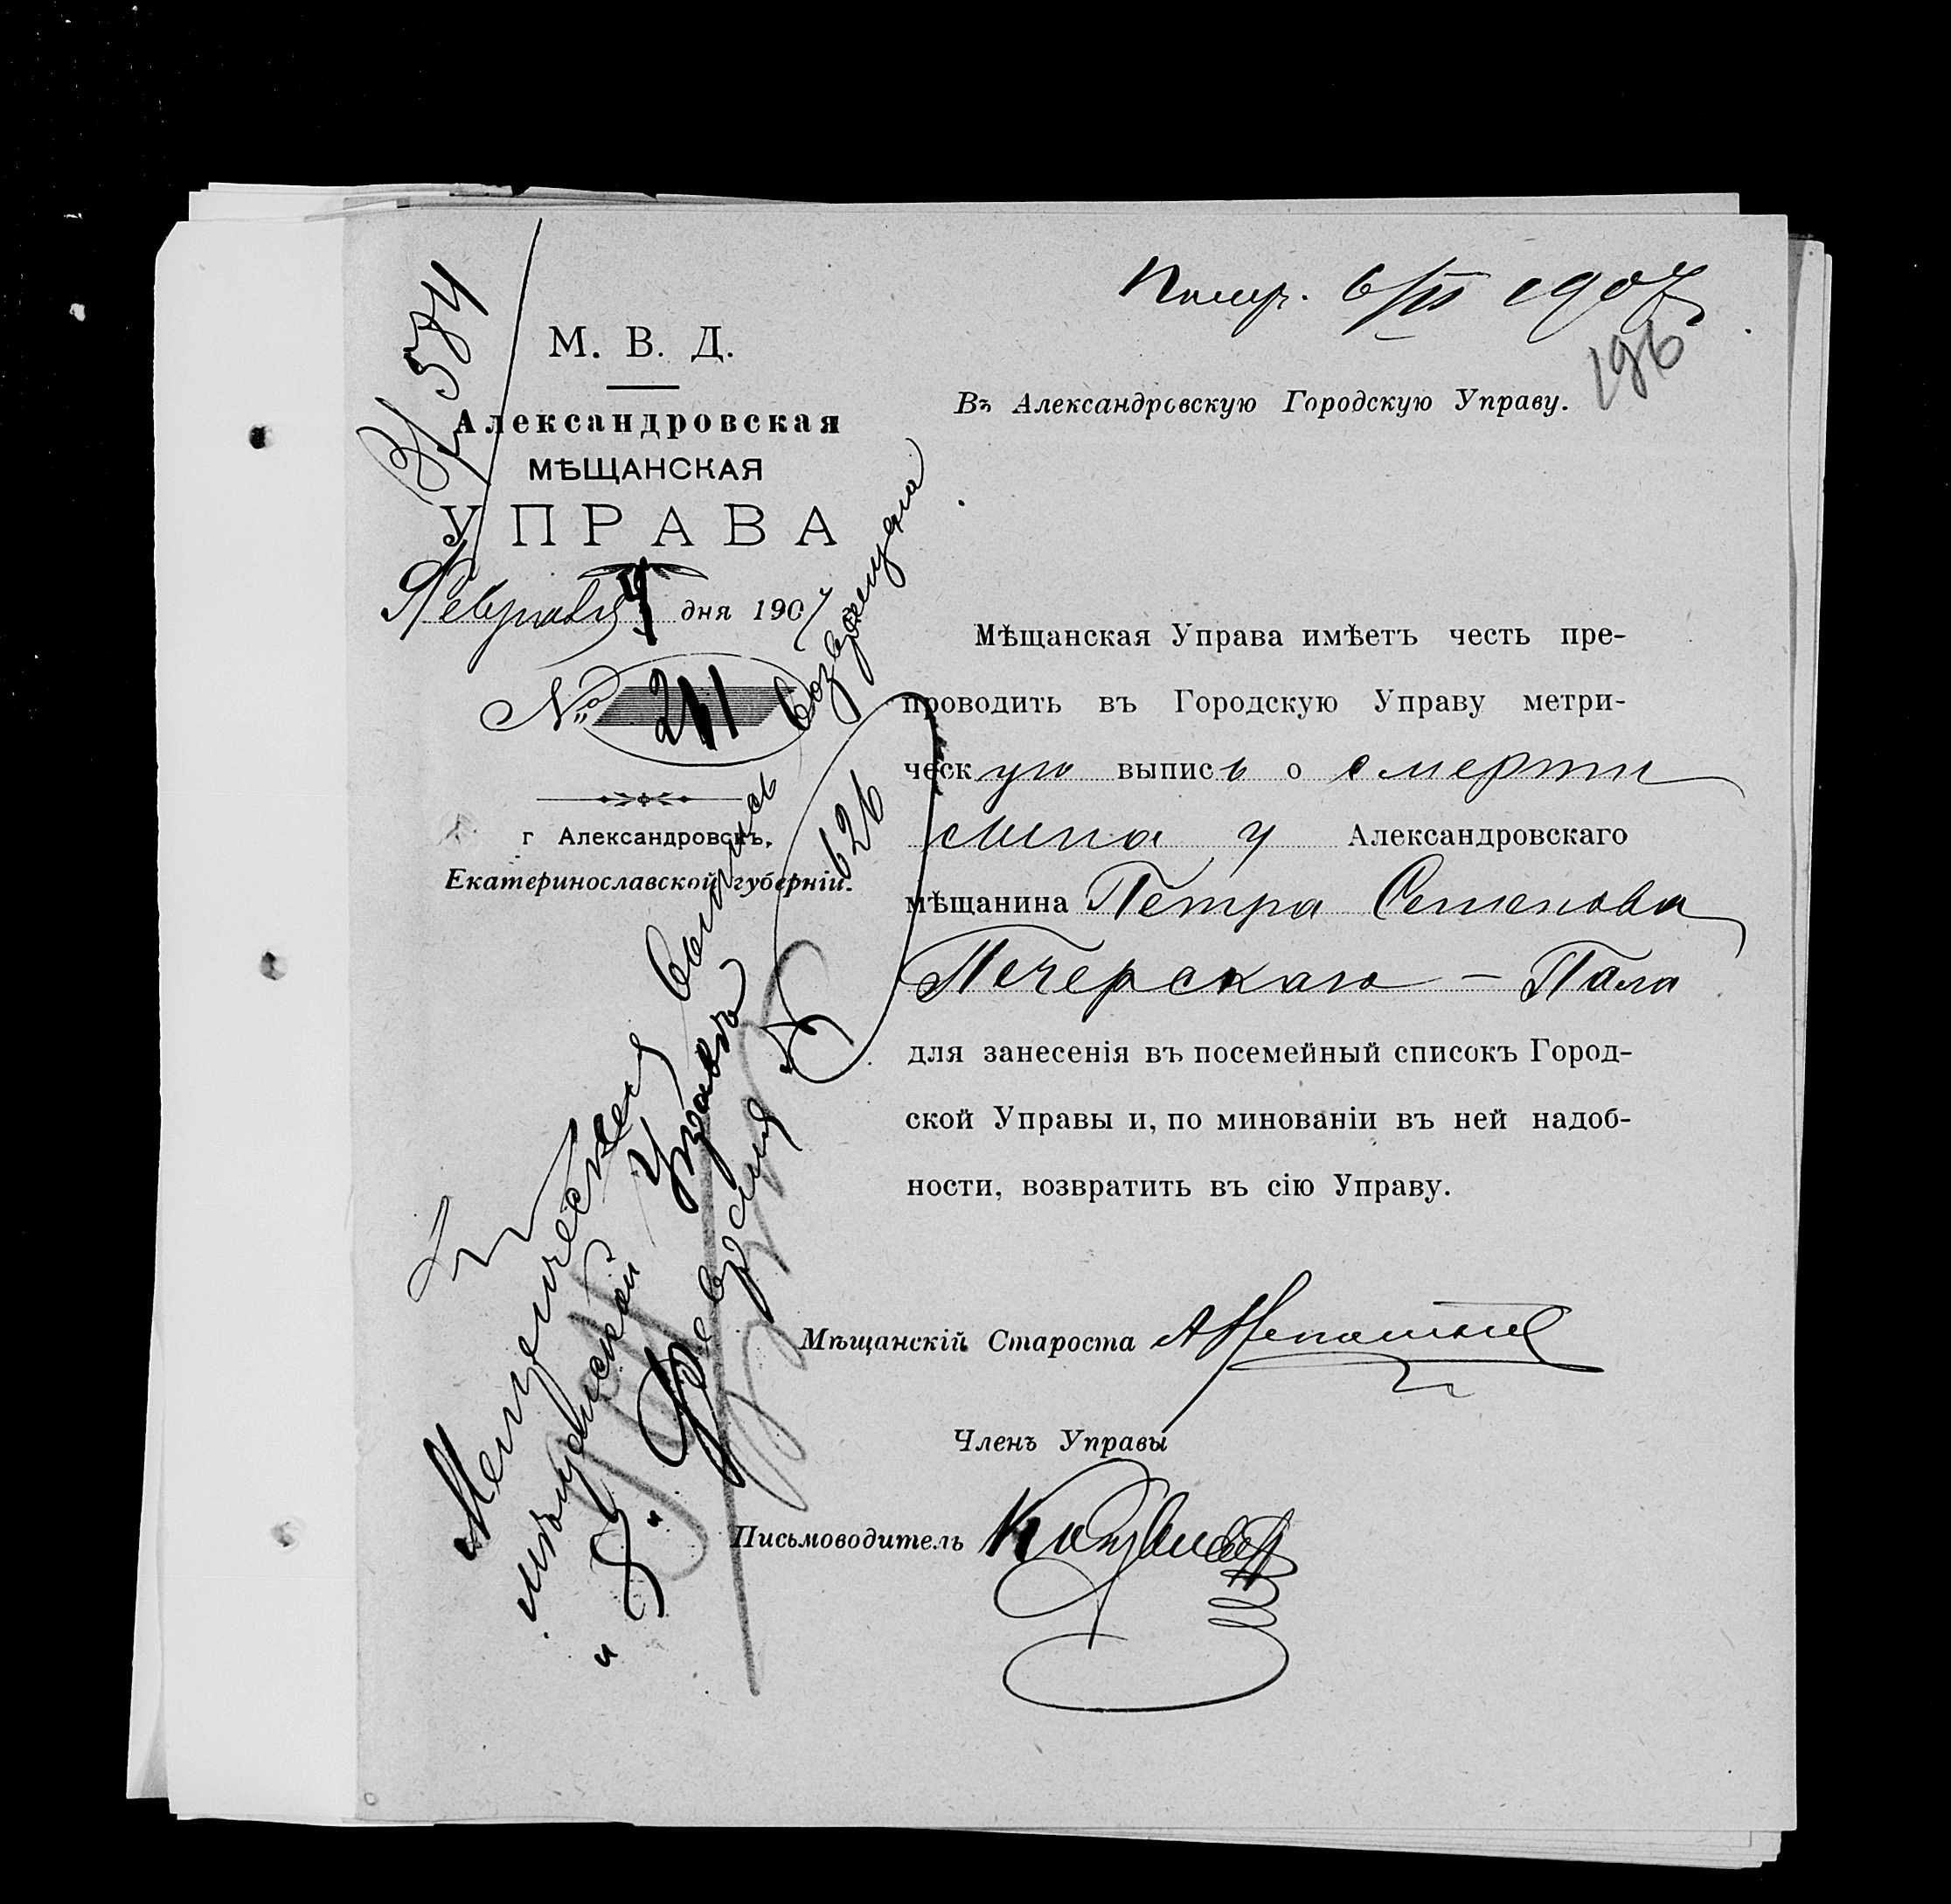 Получ. 6/II 1907
196
В/574
М. В. Д.
Александровская
МѢЩАНСКАЯ
УПРАВА
Февраля 4 дня 1907
№ 241
г Александровскъ,
Екатеринославской губерніи.
Въ Александровскую Городскую Управу.
Мѣщанская Управа имѣетъ честь пре-
проводить въ Городскую Управу метри-
ческую выпись о смерти
сына у Александровскаго
мѣщанина Петра Семенова
Печерскаго — Павла
для занесенія въ посемейный списокъ Город-
ской Управы и, по минованіи въ ней надоб-
ности, возвратить въ сію Управу.
Мѣщанскій Староста
Членъ Управы
Письмоводитель
Метрическая выпись возвращена
мѣщанской Управѣ
"8" Февраля
№ 626